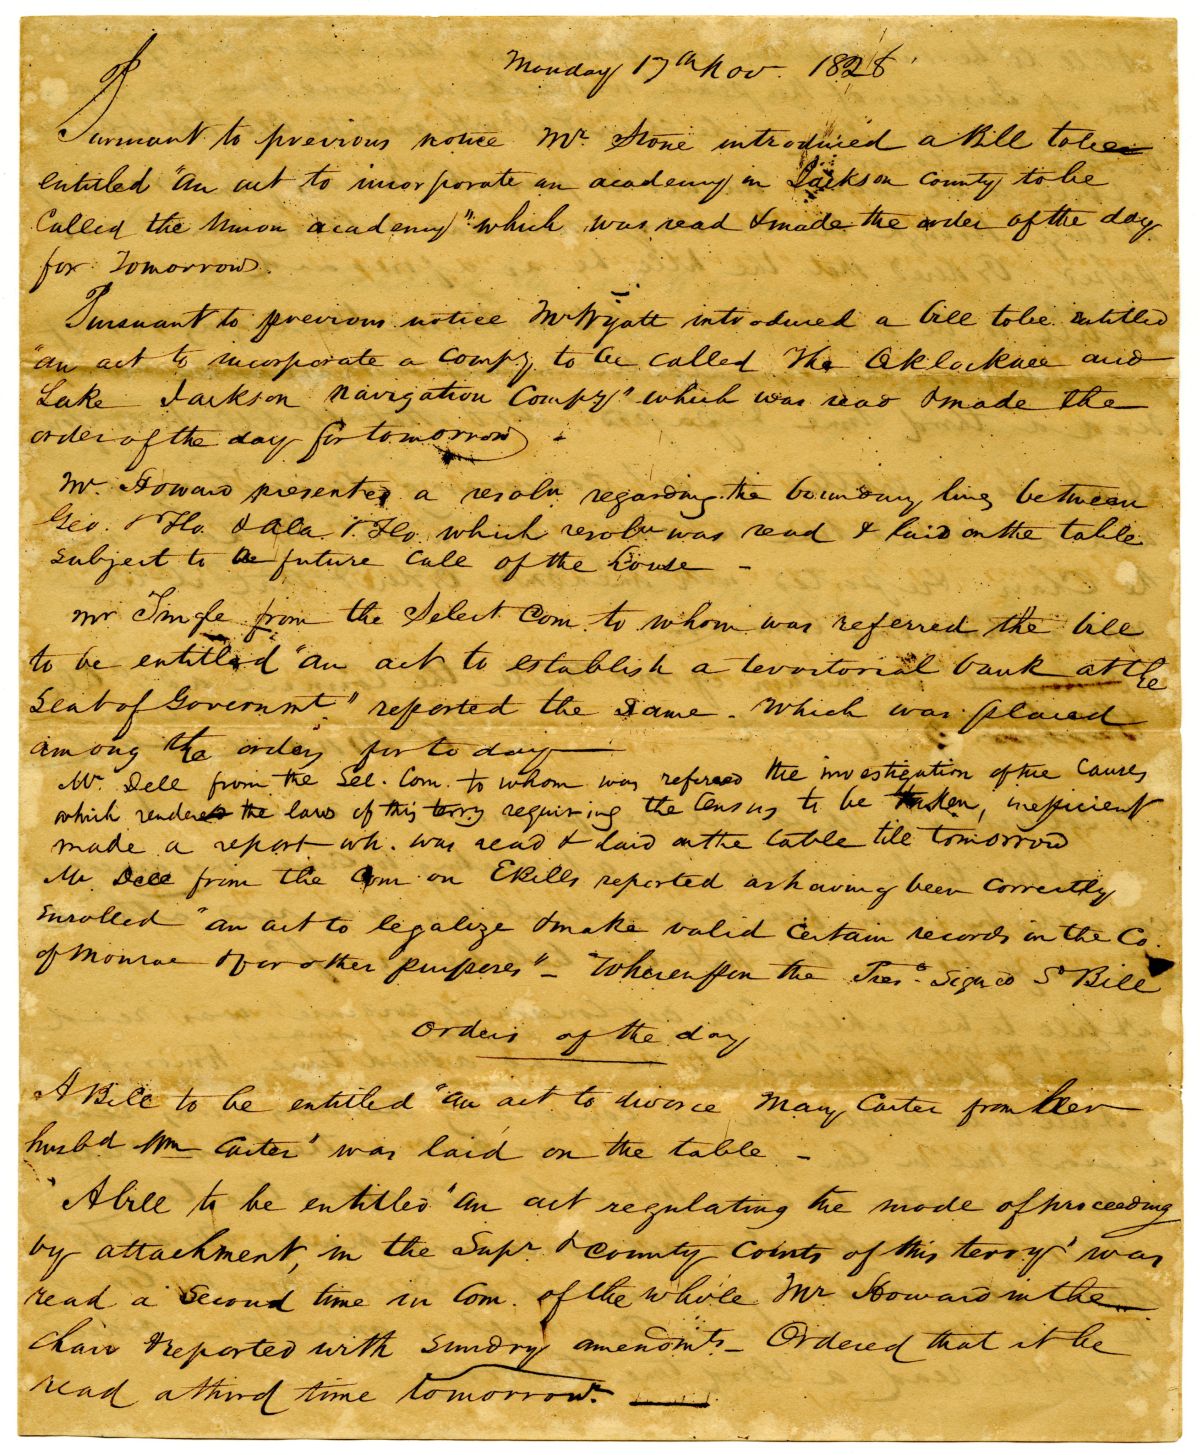 Monday 17th Nov. 1828
Pursuant to previous notice Mr. Stone introduced a Bill to be
entitled "an act to incorporate an academy in Jackson County to be
Called the Union academy" which was read & made the order of the day
for Tomorrow.
Pursuant to previous notice Mr Wyatt introduced a bill to be entitled
"an act to incorporate a Compy to be called The Oklocknee and
Lake Jackson Navigation Compy" which was read & made the
order of the day for tomorrow
Mr. Howard presented a resoln regarding the boundary line between
Geo. & Flo. & Ala. & Flo. which resoln was read & laid on the table
subject to future call of the house –
Mr Tingle from the Select Com. to whom was referred the bill
to be entitled "an act to establish a territorial bank at the
Seat of Governmt" reported the Same – Which was placed
among the orders for to day
Mr. Dell from the Sel. Com. to whom was referred the investigation of the Causes
which rendered the laws of this terry requiring the Census to be taken, inefficient
made a report wh. was read & laid on the table till tomorrow
Mr Dell from the Com on EBills reported as having been correctly
enrolled "an act to legalize & make valid certain records in the Co.
of Monroe & for other purposes" – Whereupon the Pres. Signed Sd Bill
Orders of the day
A Bill to be entitled "an act to divorce Mary Carter from her
husbd Wm Carter" was laid on the table –
A bill to be entitled "an act regulating the mode of proceeding
by attachment, in the Supr. & County Courts of this terry" was
read a Second time in Com. of the whole Mr Howard in the
chair & reported with sundry amendmts – Ordered that it be
read a third time tomorrow.